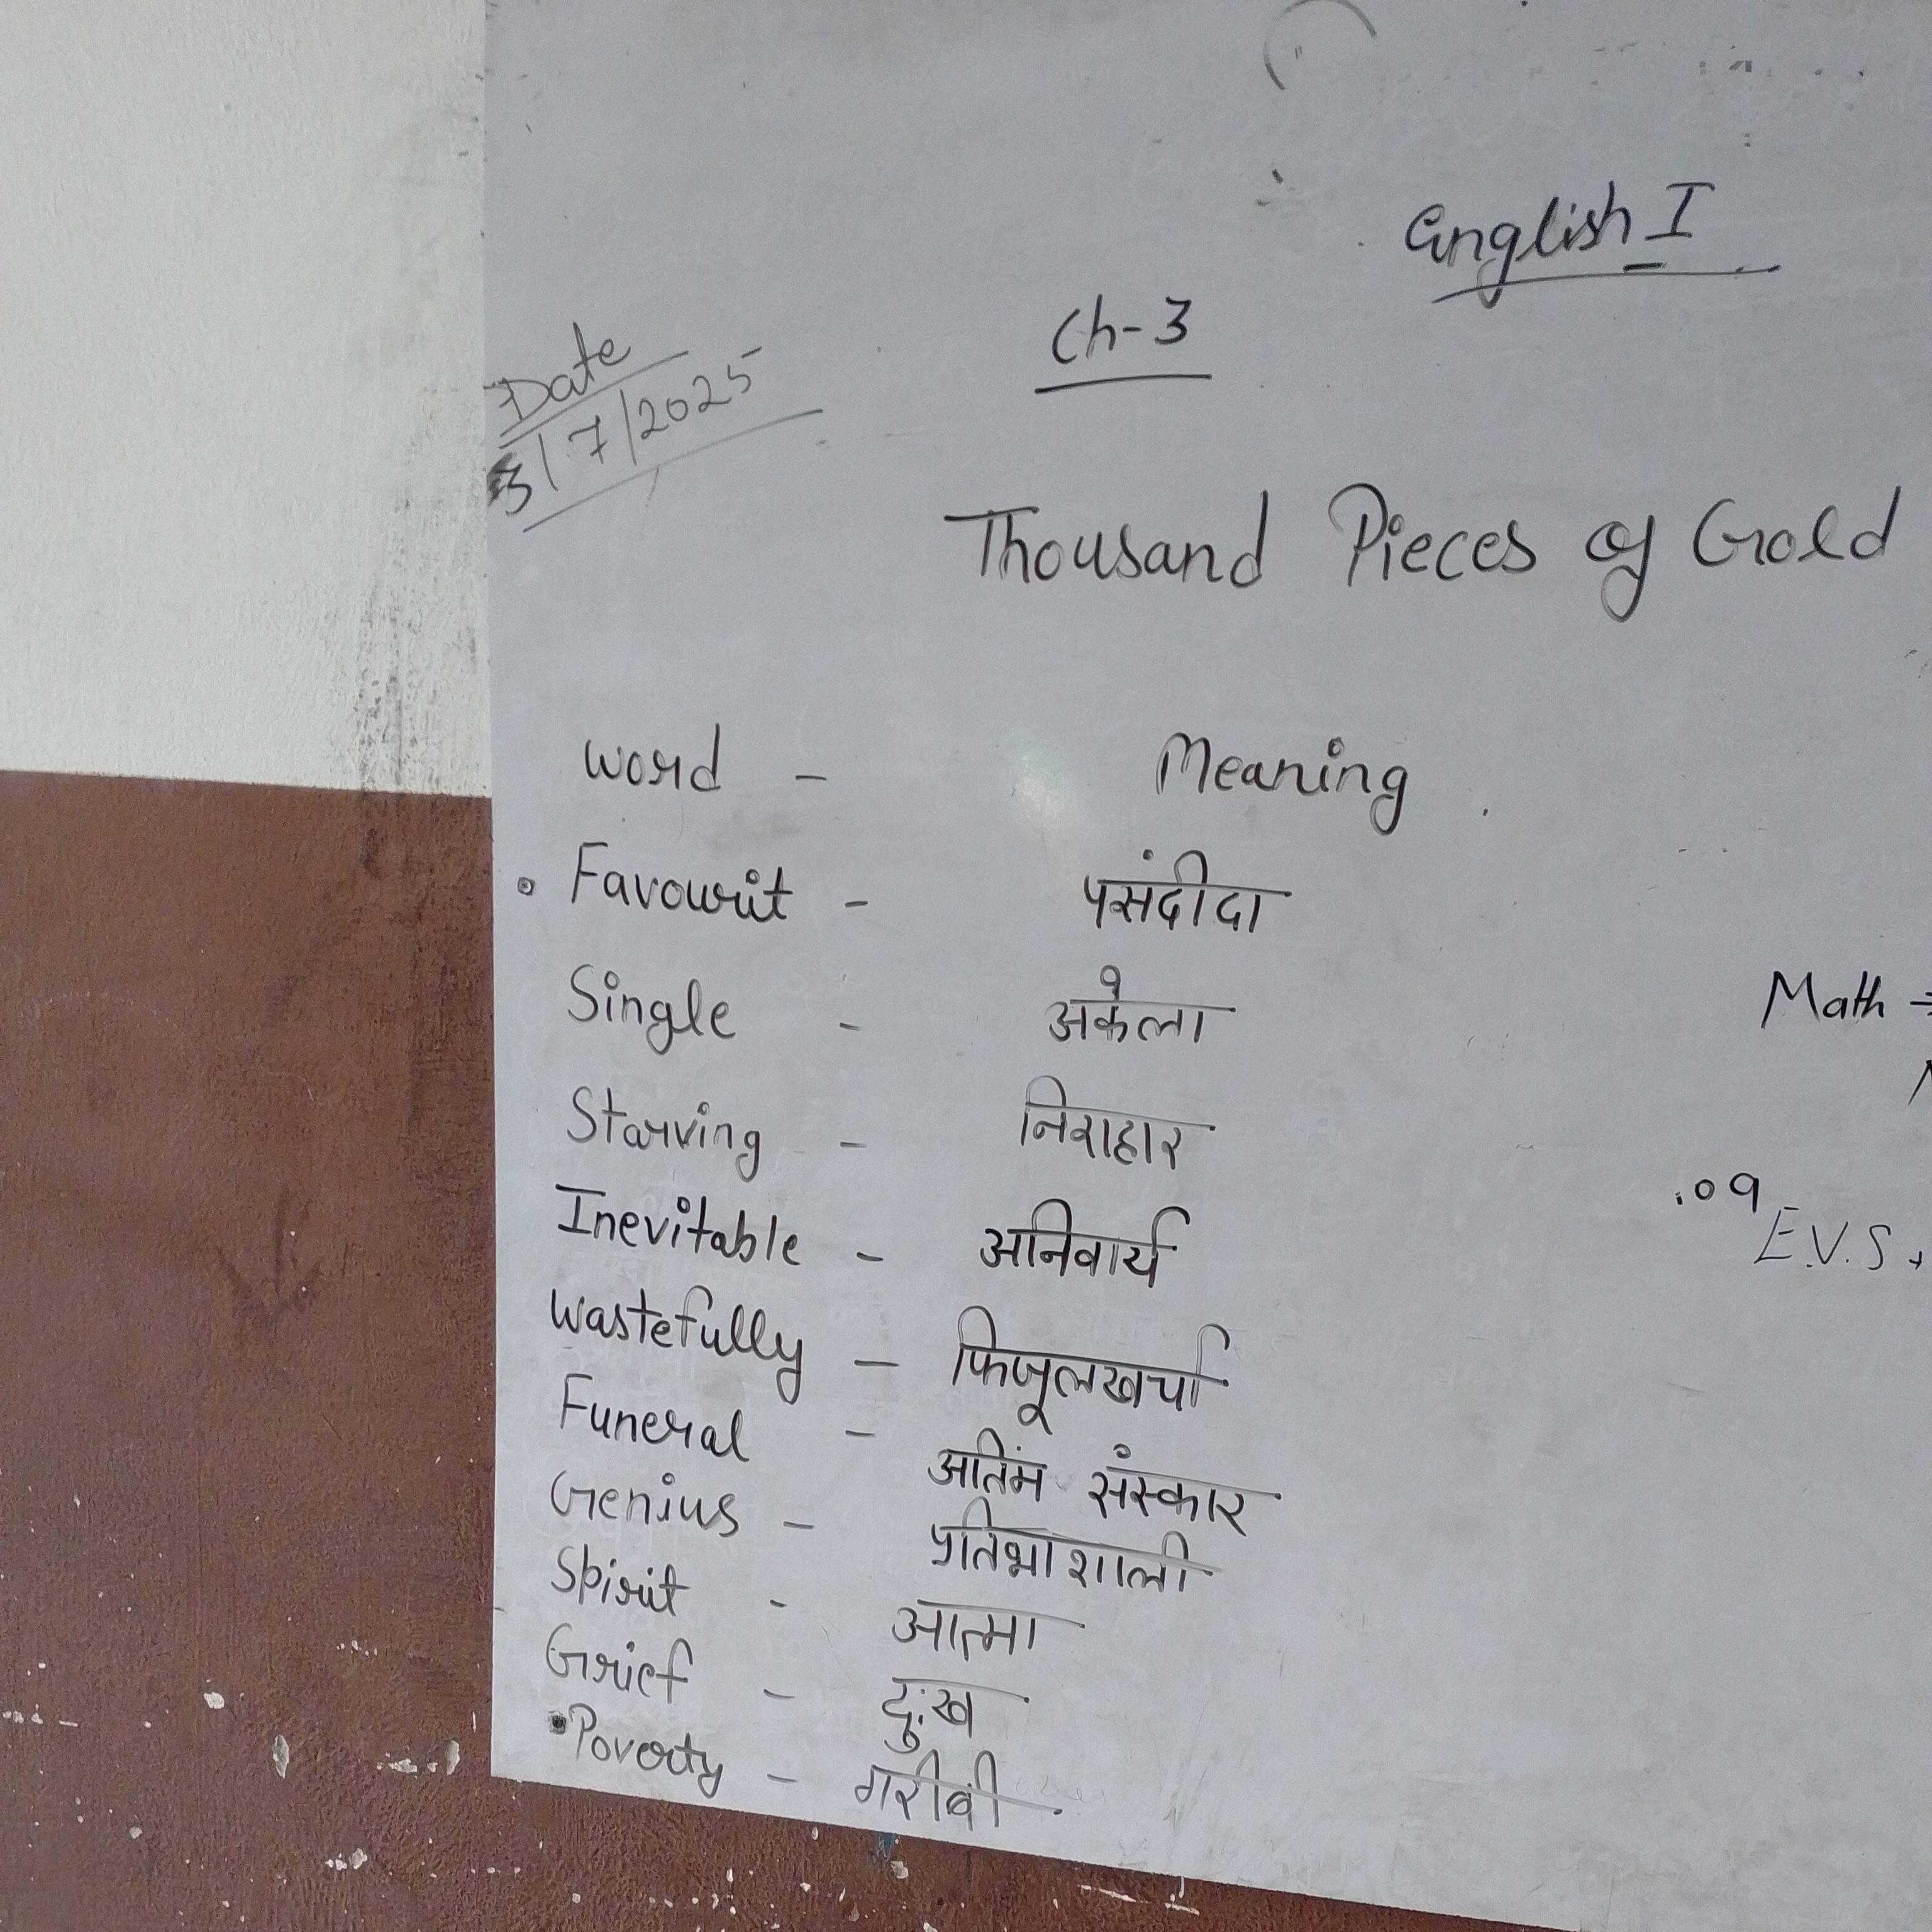 English I
Ch-3
Date
3/7/2025
Thousand Pieces of Gold
Word - Meaning
Favourit - पसंदीदा
Single - अकेला
Starving - निराहार
Inevitable - अनिवार्य
Wastefully - फिजूलखर्ची
Funeral - अतिंम संस्कार
Genius - प्रतिभाशाली
Spirit - आत्मा
Grief - दुःख
Poverty - गरीबी
Math →
.09
E.V.S